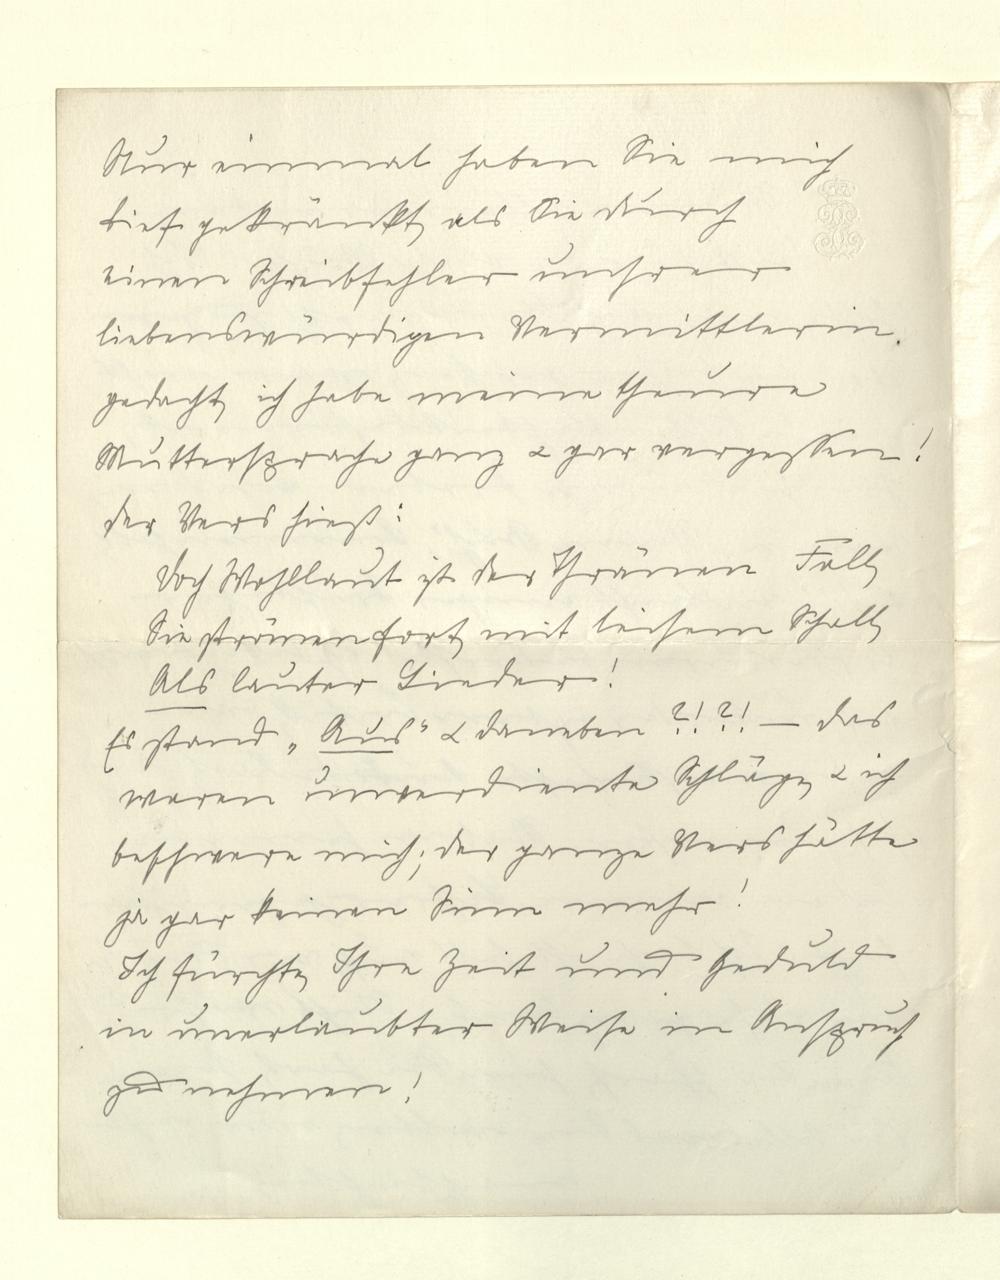 Nur einmal haben Sie mich
tief gekränkt, als Sie durch
einen Schreibfehler unsrer
liebenswürdigen Vermittlerin
gedacht, ich habe meine theure
Muttersprache ganz & gar vergessen!
der Vers hieß:
Doch Wohllaut ist der Thränen Fall,
Sie strömen fort, mit leisem Schall,
Als lauter Lieder!
Es stand „Aus“ & daneben ?!?! — das
waren unverdiente Schläge, & ich
beschwere mich; der ganze Vers hätte
ja gar keinen Sinn mehr!
Ich fürchte, Ihre Zeit und Geduld
in unerlaubter Weise in Anspruch
zu nehmen!